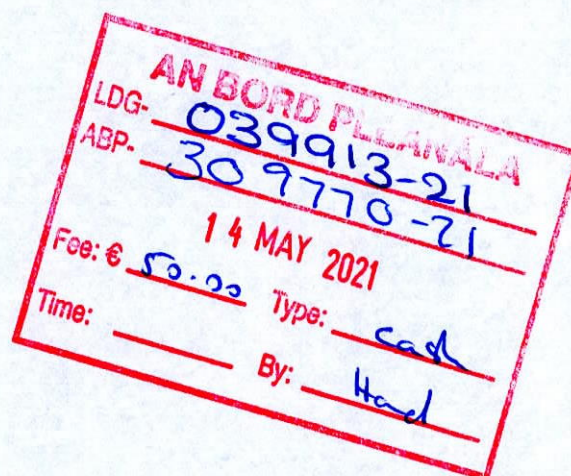 AN BORD PLEANÁLA
LDG- 039913-21
ABP- 309770-21
14 MAY 2021
Fee: € 50.00 Type: Cash
Time: By: Hand